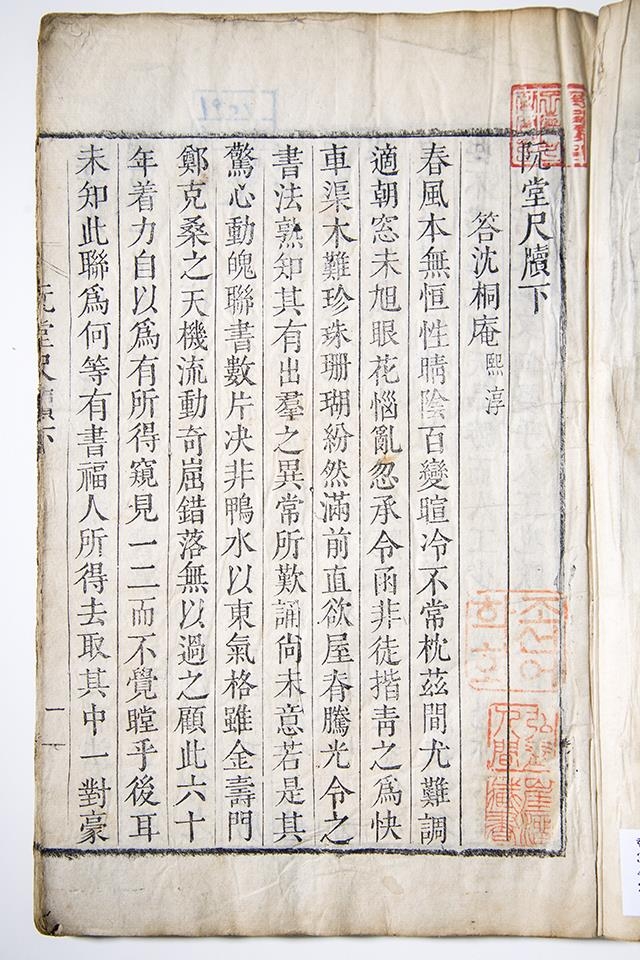 阮堂尺牘下
答沈桐庵熙淳
春風本無恒性晴陰百變暄冷不常枕茲間尤難調
適朝窓未旭眼花惱亂忽承令函非徒揩靑之爲快
車渠木難珍珠珊瑚紛然滿前直欲屋脊騰光令之
書法熟知其有出羣之異常所歎誦尙未意若是其
驚心動魄聯書數片决非鴨水以東氣格雖金壽門
鄭克桑之天機流動奇崛錯落無以過之顧此六十
年着力自以爲有所得窺見一二而不覺瞠乎後耳
未知此聯爲何等有書福人所得去取其中一對豪
阮堂尺牘下
一
조선어